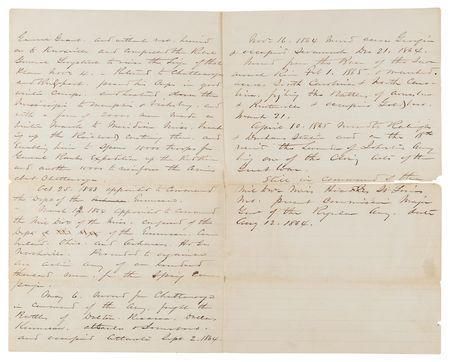 General Grant. and without rest, hurried
on to Knoxville and compelled the Rebel
General Longstreet to raise the Siege of that
Place Returned to Chattanooga
and Bridgeport placed his Corps in good
winter Camps. and hastened down the
Mississippi to Memphis & Vicksburg, and
with a force of 20000 men made a
winter March to Meridian Miss. breaking
up the Railroad
back in time to Spare 10000 troops for
General Banks Expedition up the Red River
and another 10000 to reinforce the Army
at Chattanooga.
Oct 25. 1863 appointed to Command
the Dept of the Tennessee.
March 12 1864 appointed to command
the Mil Div of the Miss. composed of the
Depts of the Tennessee. Cum
berland. Ohio. and Arkansas. Hd Qrs
Nashville. Proceeded to organize
an active army of one hundred
thousand men. for the Spring Cam
paign.
May 6. Moved from Chattanooga
in command of the Army. fought the
Battles of Dalton. Resaca. Dallas.
Kennesaw. Atlanta & Jonesboro.
and occupied Atlanta Sept 2. 1864
Nov. 16. 1864 Moved across Georgia
& occupied Savannah Dec 21. 1864.
Moved from the Rear of the Sav
annah River Feb 1. 1865 & marched
across South Carolina & North Caro
lina, fighting the Battles of Averas
& Bentonville & occupied Goldsboro
March 21.
April 10. 1865 Moved to Raleigh
& Durham Station. and on the 18th
recd the Surrender of Johnston's Army
being one of the Closing acts of the
Great War.
Still in command of the
Mil Div Miss Hd Qrs St Louis,
Mo. present Commission Major
Genl of the Regular Army. date
Aug 12. 1864.